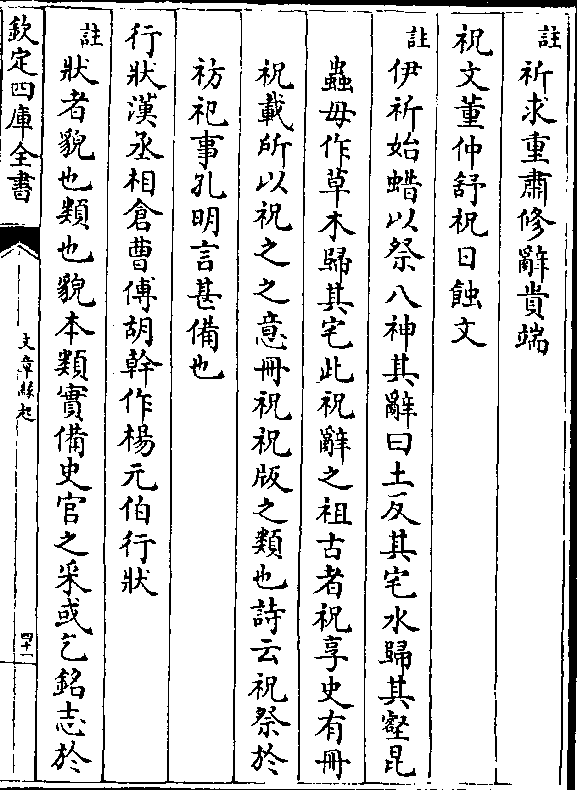 註祈求重肅修辭貴端
祝文董仲舒祝日蝕文
註伊祈始蜡以祭八神其辭曰土反其宅水歸其壑昆
蟲毋作草木歸其宅此祝辭之祖古者祝享史有冊
祝載所以祝之之意冊祝祝版之類也詩云祝祭於
祊祀事孔明言甚備也
行狀漢丞相倉曹傅胡幹作楊元伯行狀
註狀者貌也類也貌本類實備史官之采或乞銘志於
欽定四庫全書
文章緣起
四十一